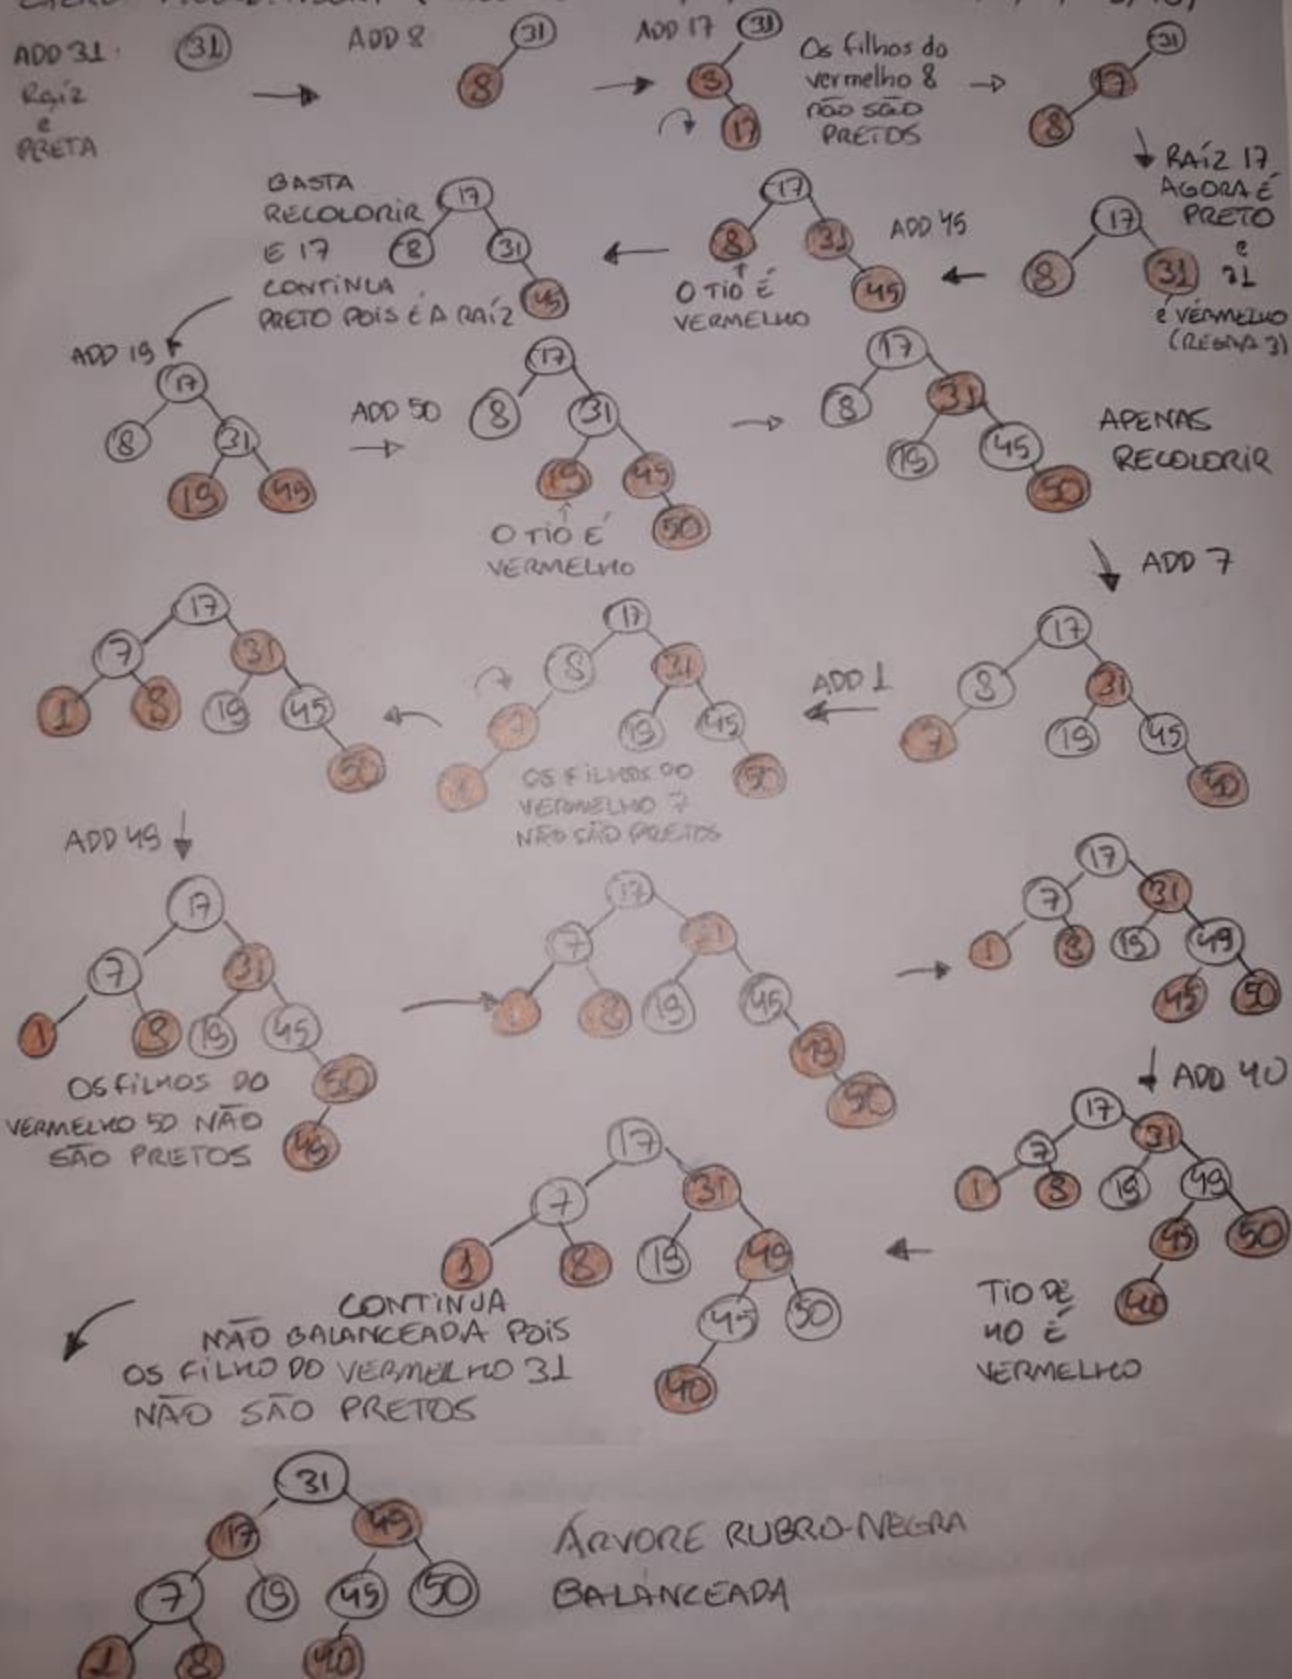 ADD 31:
RAÍZ
É
PRETA
31
ADD 8
31
8
ADD 17
31
8
17
Os filhos do
vermelho 8
NÃO SÃO
PRETOS
31
17
8
RAÍZ 17
AGORA É
PRETO
e
31
é VERMELHO
(REGRA 3)
17
8
31
ADD 45
17
8
31
45
O TIO É
VERMELHO
BASTA
RECOLORIR
E 17
CONTINUA
PRETO POIS É A RAÍZ
17
8
31
45
ADD 19
17
8
31
19
45
ADD 50
17
8
31
19
45
50
O TIO É
VERMELHO
17
8
31
19
45
50
APENAS
RECOLORIR
ADD 7
17
8
31
7
19
45
50
ADD 1
17
8
31
7
19
45
1
50
OS FILHOS DO
VERMELHO 7
NÃO SÃO PRETOS
17
7
31
1
8
19
45
50
ADD 49
17
7
31
1
8
19
45
50
49
OS FILHOS DO
VERMELHO 50 NÃO
SÃO PRETOS
17
7
31
1
8
19
45
49
50
17
7
31
1
8
19
49
45
50
ADD 40
17
7
31
1
8
19
49
45
50
40
TIO DE
40 É
VERMELHO
17
7
31
1
8
19
49
45
50
40
CONTINUA
NÃO BALANCEADA POIS
OS FILHO DO VERMELHO 31
NÃO SÃO PRETOS
31
17
49
7
19
45
50
1
8
40
ÁRVORE RUBRO-NEGRA
BALANCEADA